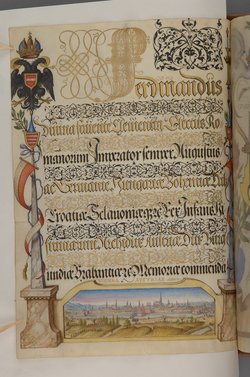 Ferdinandus
Divina favente Clementia Electus Ro
manorum Imperator semper Augustus
ac Germaniae, Hungariae Bohemiae Dal
Croatiae Sclavoniae &c Rex Infans
Archidux Austriae Dux Burg
undiae Brabantiae &c Memoriae commenda